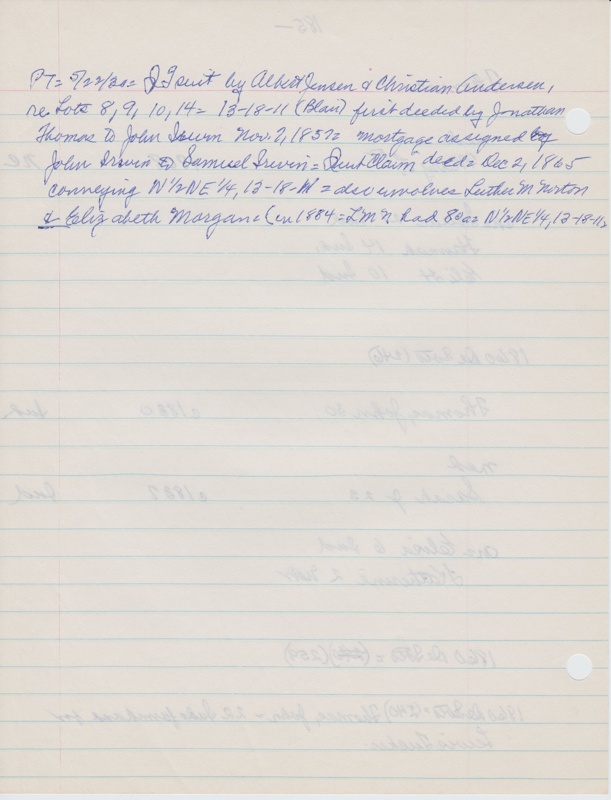 PT = 5/22/30 = Q T suit by Albert Jensen & Christian Andersen,
re Lots 8, 9, 10, 14 = 13-18-11 (Blair) first deeded by Jonathan
Thomas to John Irwin Nov. 7, 1857 = mortgage assigned by
John Irwin to Samuel Irwin = Quit Claim deed = Dec 2, 1865
conveying N½NE¼, 13-18-11 = also involves Luther M. Norton
& Elizabeth Morgan = (in 1884 = L.M.N had 80a = N½NE¼, 13-18-11)